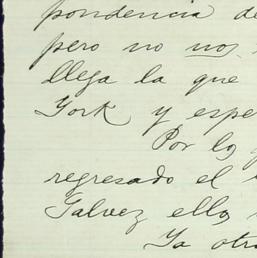 pondencia de
pero no nos
llega la que
York y espe
Por los
regresado el
Galvez ellos
Ya otro